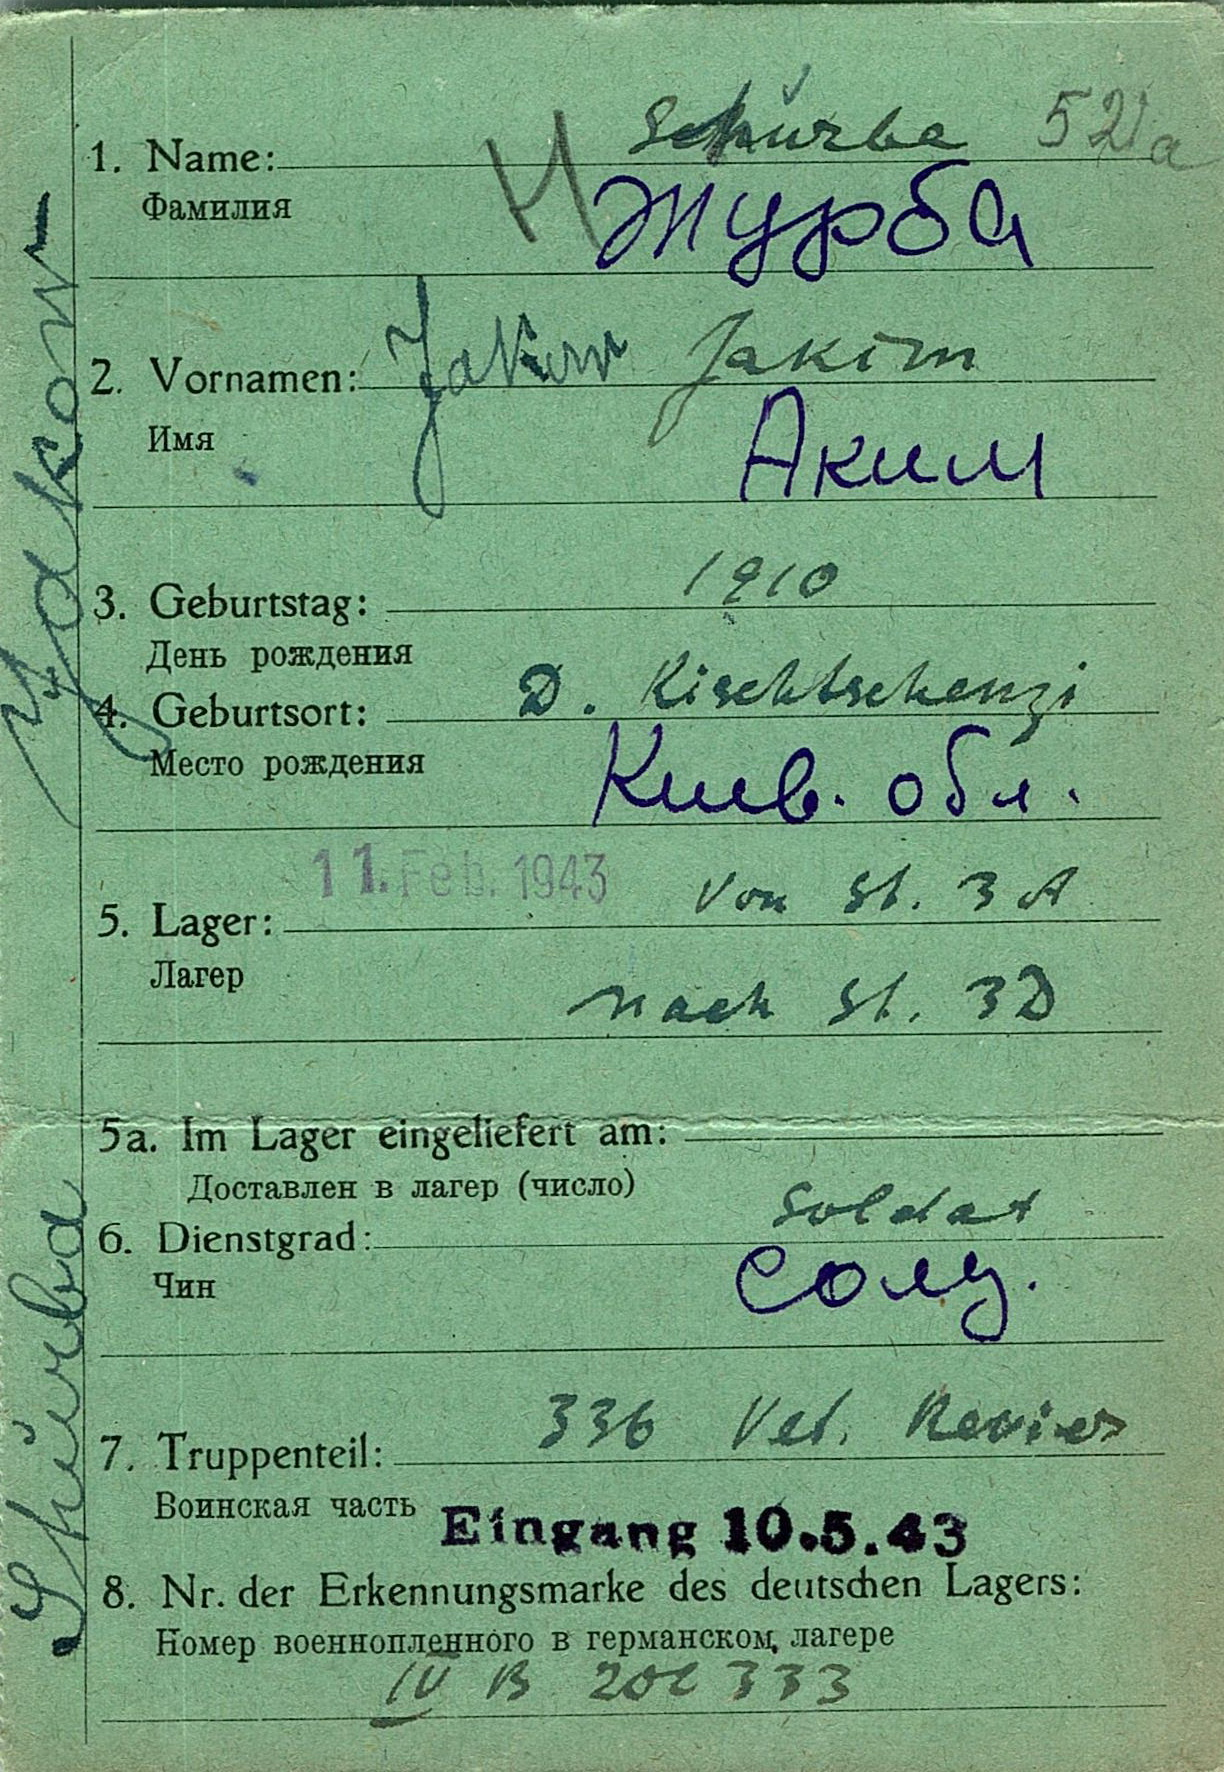 Schurba 521a
1. Name:
Фамилия
H Журба
2. Vornamen: Jakow Jakim
Имя
Аким
3. Geburtstag: 1910
День рождения
4. Geburtsort: D. Kischtschenzi
Место рождения
Киев. обл.
11. Feb. 1943 von St. 3 A
5. Lager:
Лагер
nach St. 3D
5a. Im Lager eingeliefert am:
Доставлен в лагер (число)
6. Dienstgrad: Soldat
Чин
солд.
7. Truppenteil: 336 Vet. Revier
Воинская часть
Eingang 10.5.43
8. Nr. der Erkennungsmarke des deutschen Lagers:
Номер военнопленного в германском лагере
IV B 202 333
Shúrba Jakow